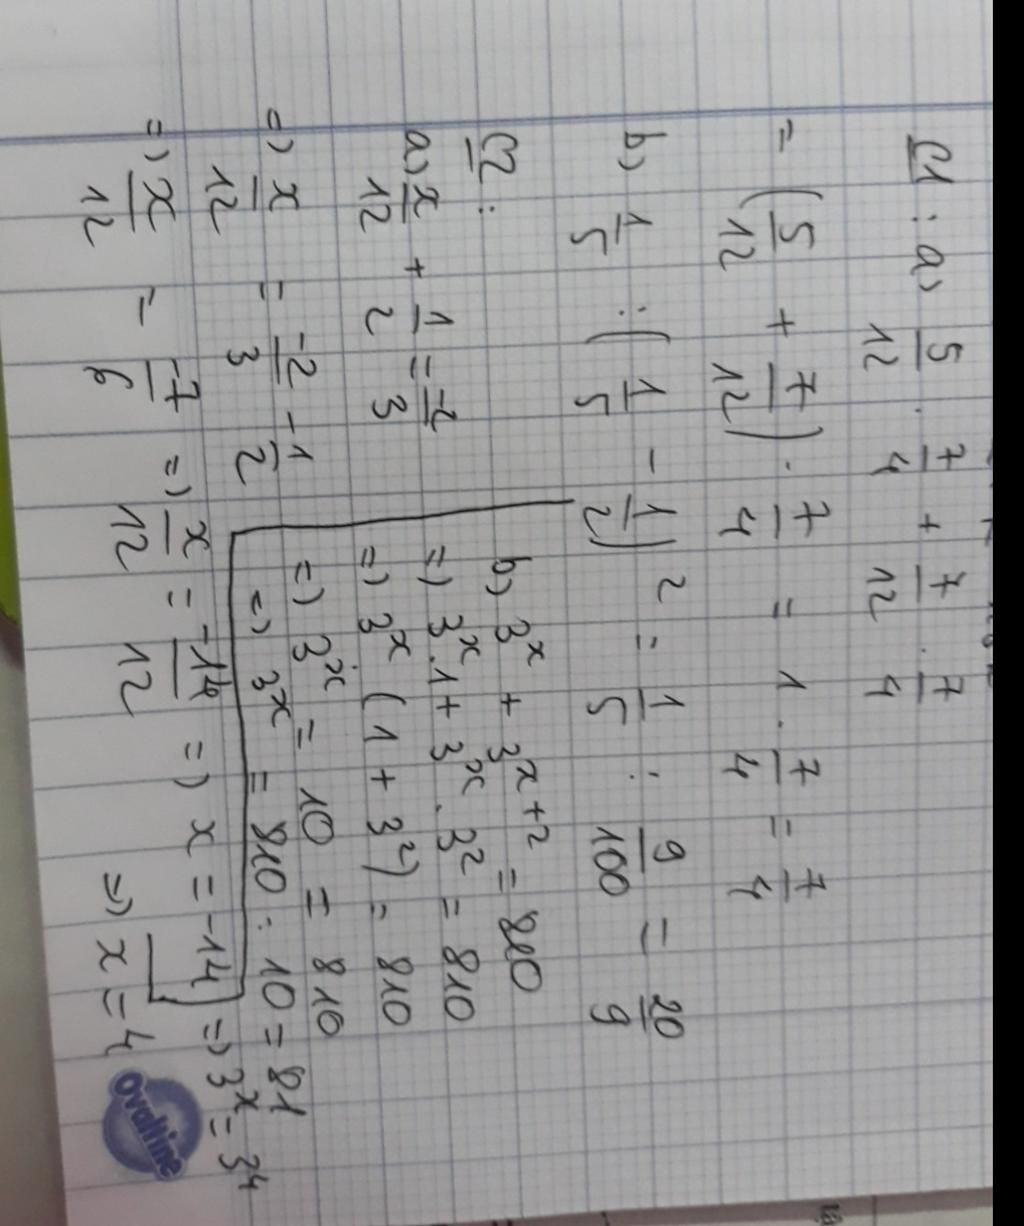 C1 : a) 5/12 . 7/4 + 7/12 . 7/4
= (5/12 + 7/12) . 7/4 = 1 . 7/4 = 7/4
b) 1/5 : (1/5 - 1/2)² = 1/5 : 9/100 = 20/9
C2 :
a) x/12 + 1/2 = -2/3
=) x/12 = -2/3 - 1/2
=) x/12 = -7/6 =) x/12 = -14/12 =) x = -14
b) 3^x + 3^(x+2) = 810
=) 3^x . 1 + 3^x . 3² = 810
=) 3^x (1 + 3²) = 810
=) 3^x = 10 = 810
=) 3^x = 810 : 10 = 81
=) 3^x = 3⁴
=) x = 4
Ovaltine